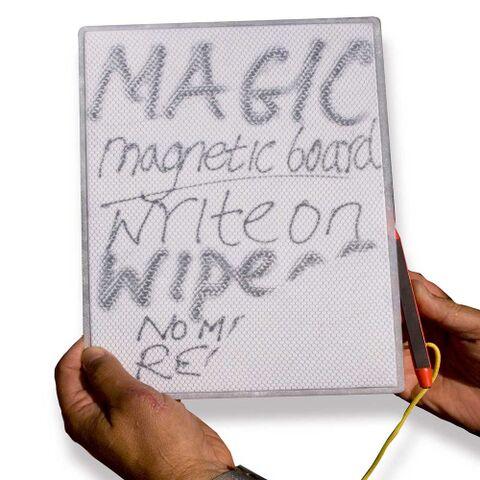 MAGIC
magnetic board
write on
wipe
NO